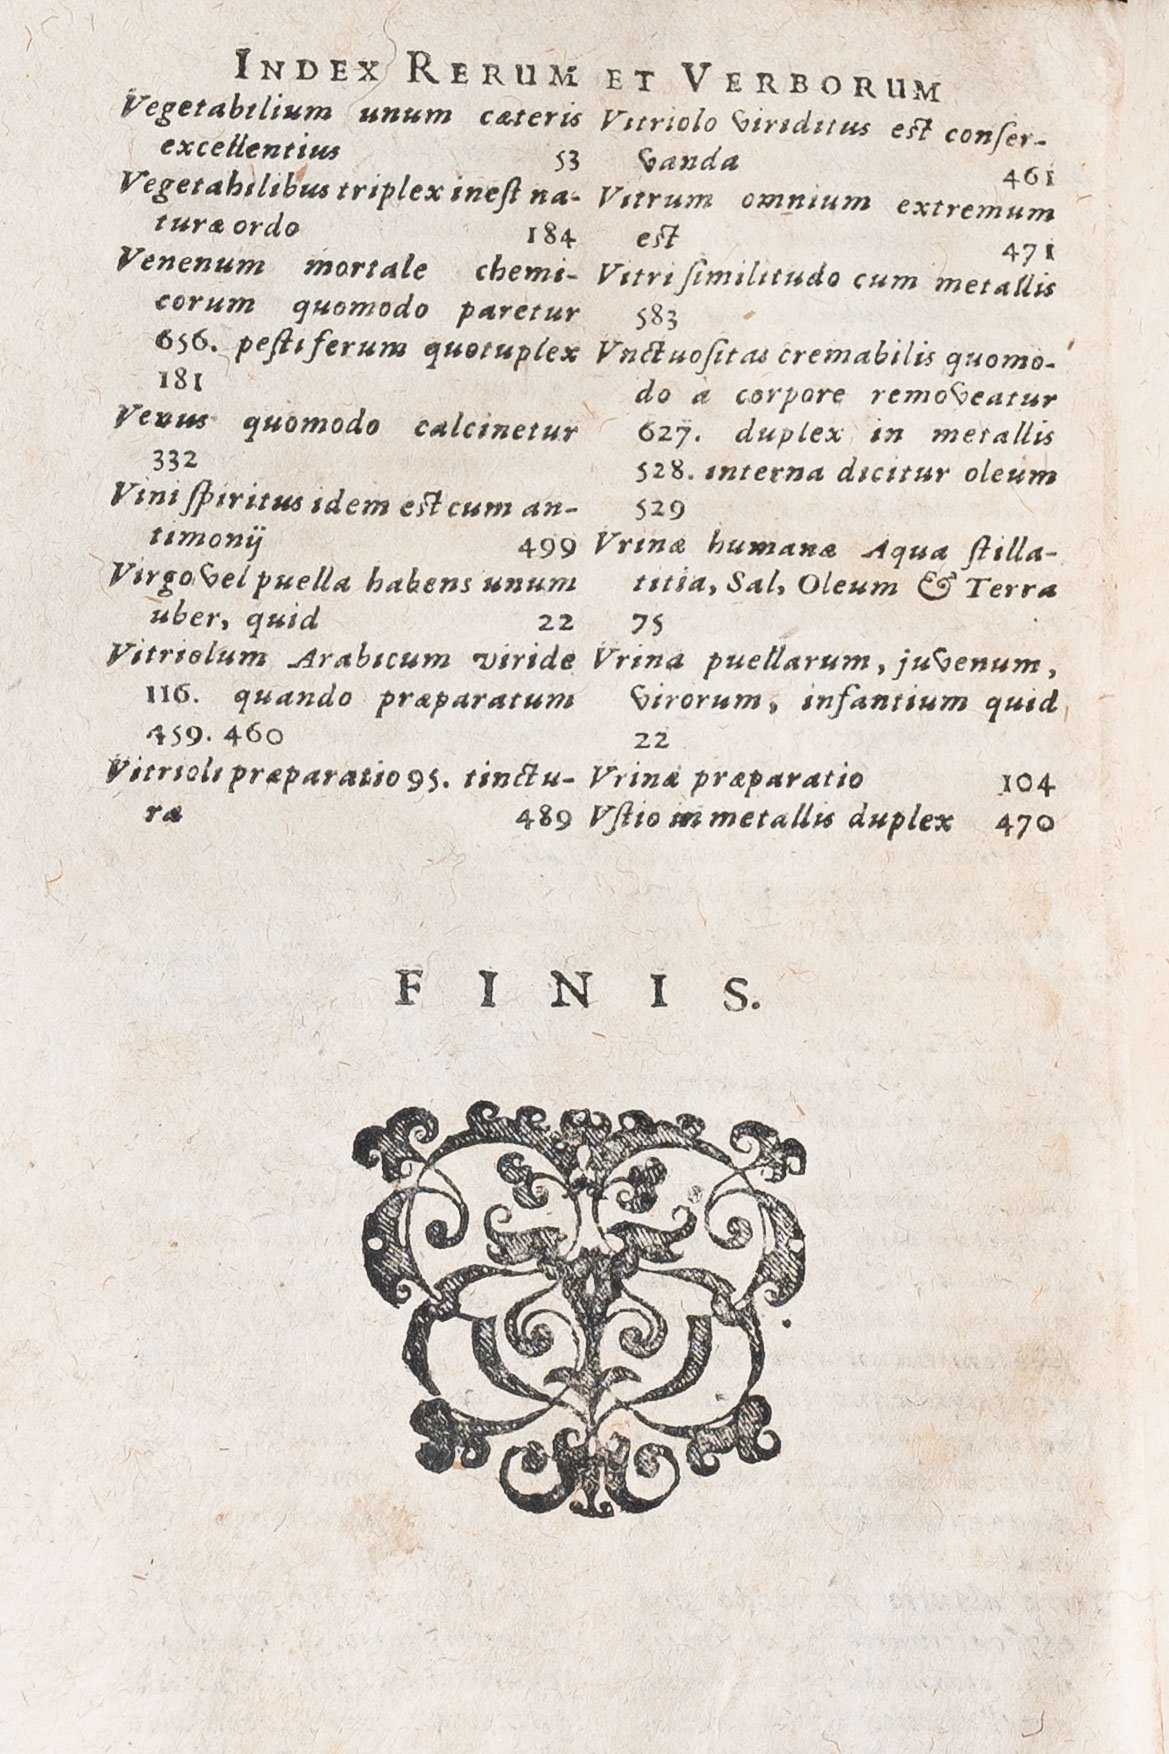 INDEX RERUM ET VERBORUM
Vegetabilium unum cæteris
excellentius 53
Vegetabilibus triplex ineſt na-
turæ ordo 184
Venenum mortale chemi-
corum quomodo paretur
656. peſtiferum quotuplex
181
Venus quomodo calcinetur
332
Vini ſpiritus idem eſt cum an-
timonij 499
Virgo vel puella habens unum
uber, quid 22
Vitriolum Arabicum viride
116. quando præparatum
459. 460
Vitrioli præparatio 95. tinctu-
ræ 489
Vitriolo viriditus eſt conſer-
vanda 461
Vitrum omnium extremum
eſt 471
Vitri ſimilitudo cum metallis
583
Vnctuoſitas cremabilis quomo-
do à corpore removeatur
627. duplex in metallis
528. interna dicitur oleum
529
Vrinæ humanæ Aqua ſtilla-
titia, Sal, Oleum & Terra
75
Vrina puellarum, juvenum,
virorum, infantium quid
22
Vrinæ præparatio 104
Vſtio in metallis duplex 470
FINIS.